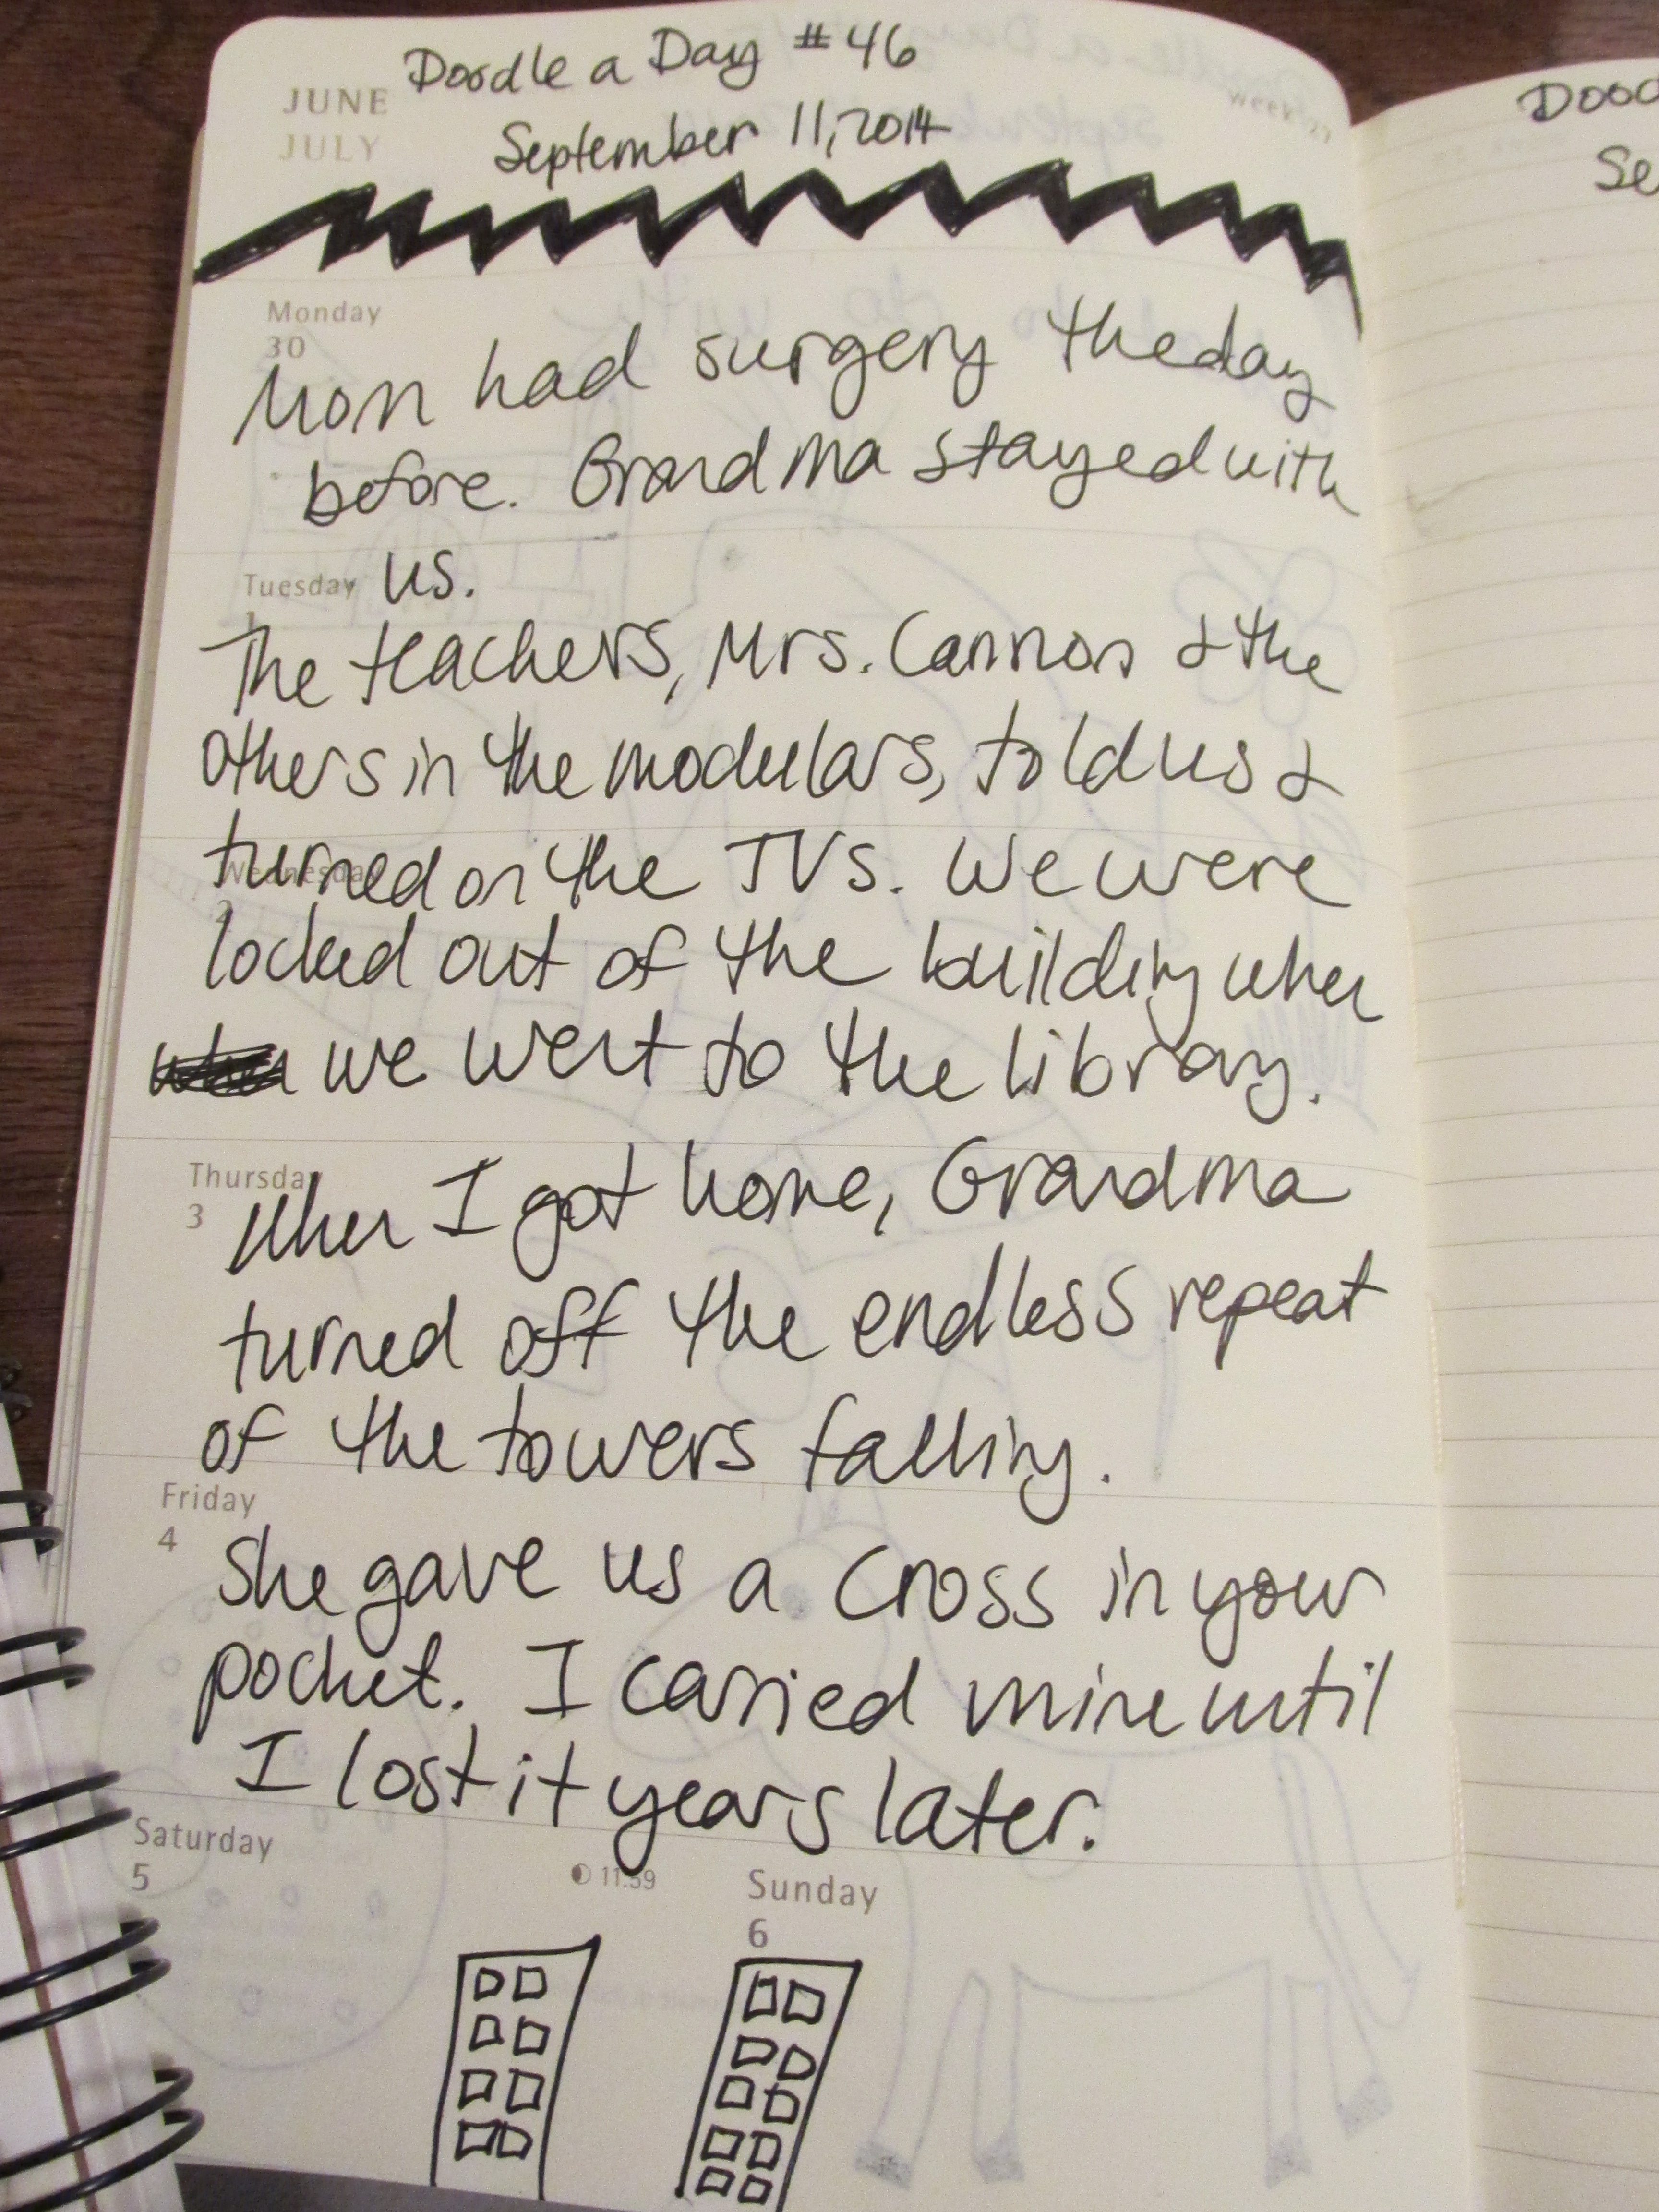 Doodle a Day #46
JUNE
JULY
September 11, 2014
Monday
30
Mom had surgery the day
before. Grandma stayed with
us.
Tuesday
1
The teachers, Mrs. Cannon & the
others in the modulars, told us &
turned on the TVs. We were
Wednesday
2
locked out of the building when
when we went to the library.
Thursday
3
When I got home, Grandma
turned off the endless repeat
of the towers falling.
Friday
4
She gave us a cross in your
pocket. I carried mine until
I lost it years later.
Saturday
5
11:59
Sunday
6
Dood
Se